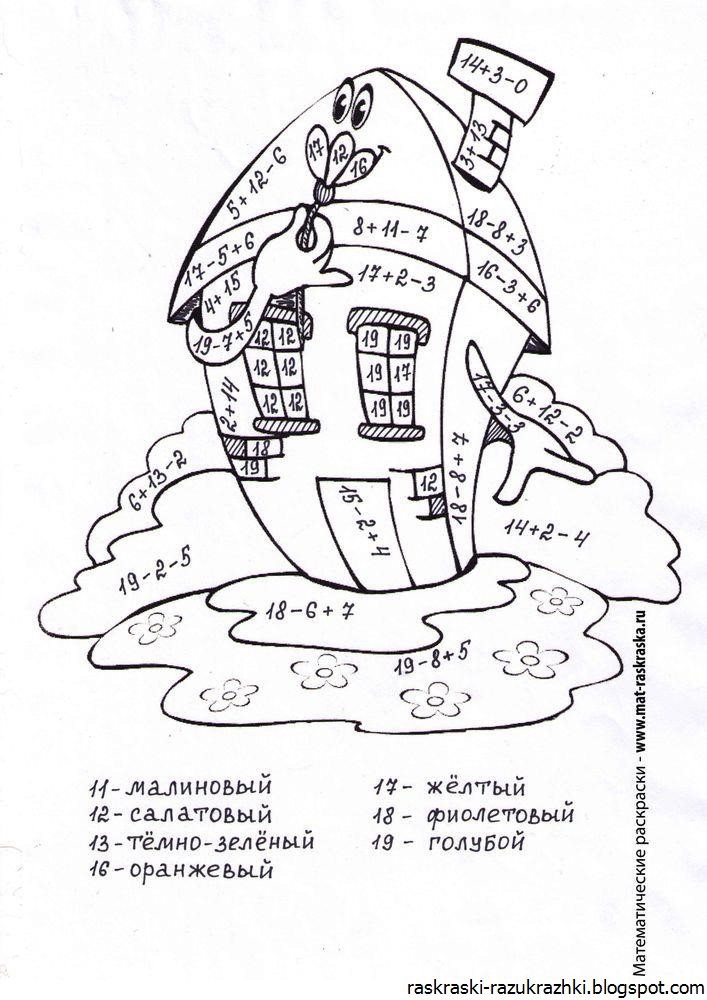 14+3-0
3+13
17
12
16
5+12-6
18-8+3
8+11-7
17-5+6
16-3+6
17+2-3
4+15
19-7+5
12 12
12 12
12 12
19 19
19 17
19 19
2+14
17-3-3
6+12-2
18
19
12
18-8+7
6+13-2
15-2+4
14+2-4
19-2-5
18-6+7
19-8+5
11-малиновый
12-салатовый
13-тёмно-зелёный
16-оранжевый
17- жёлтый
18 - фиолетовый
19 - голубой
Математические раскраски - www.mat-raskraska.ru
raskraski-razukrazhki.blogspot.com